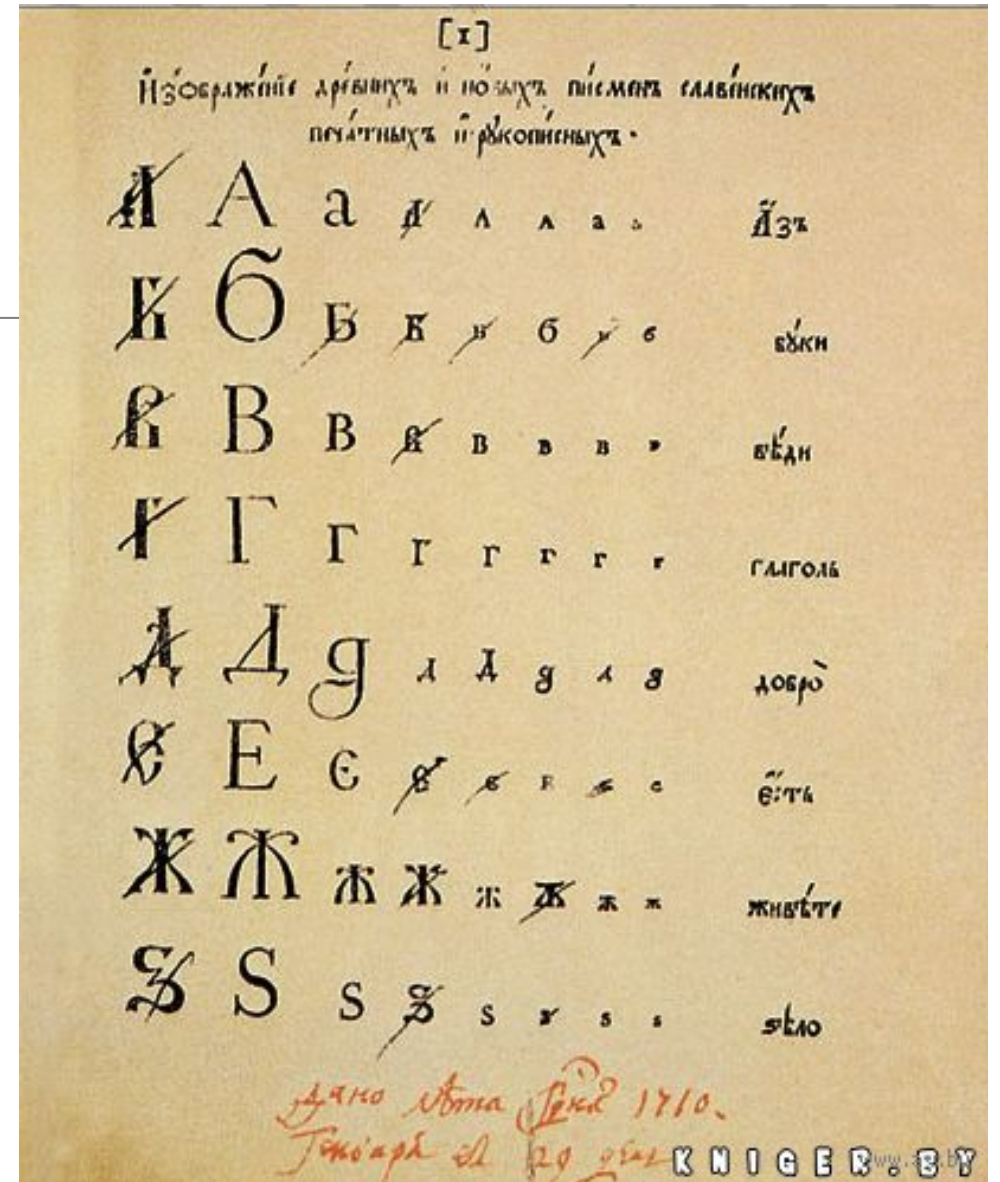 [1]
Изѡбраже́нїе дре́внихъ и но́выхъ пи́сменъ славе́нскихъ
печа́тныхъ и рꙋкопи́сныхъ.
А А а А А А а а А҆́зъ
Б Б Б Б Б б Б б бꙋ́ки
В В В В В В В В вѣ́ди
Г Г Г Г Г Г Г Г глаголь
Д Д д Д Д д Д д добро̀
Е Е є Е є Е є є є҆́сть
Ж Ж Ж Ж Ж Ж Ж Ж живѣ́те
Ѕ Ѕ Ѕ Ѕ Ѕ Ѕ Ѕ Ѕ ѕѣло
Дано лѣта 1710.
Генваря въ 29 день
KNIGER.BY